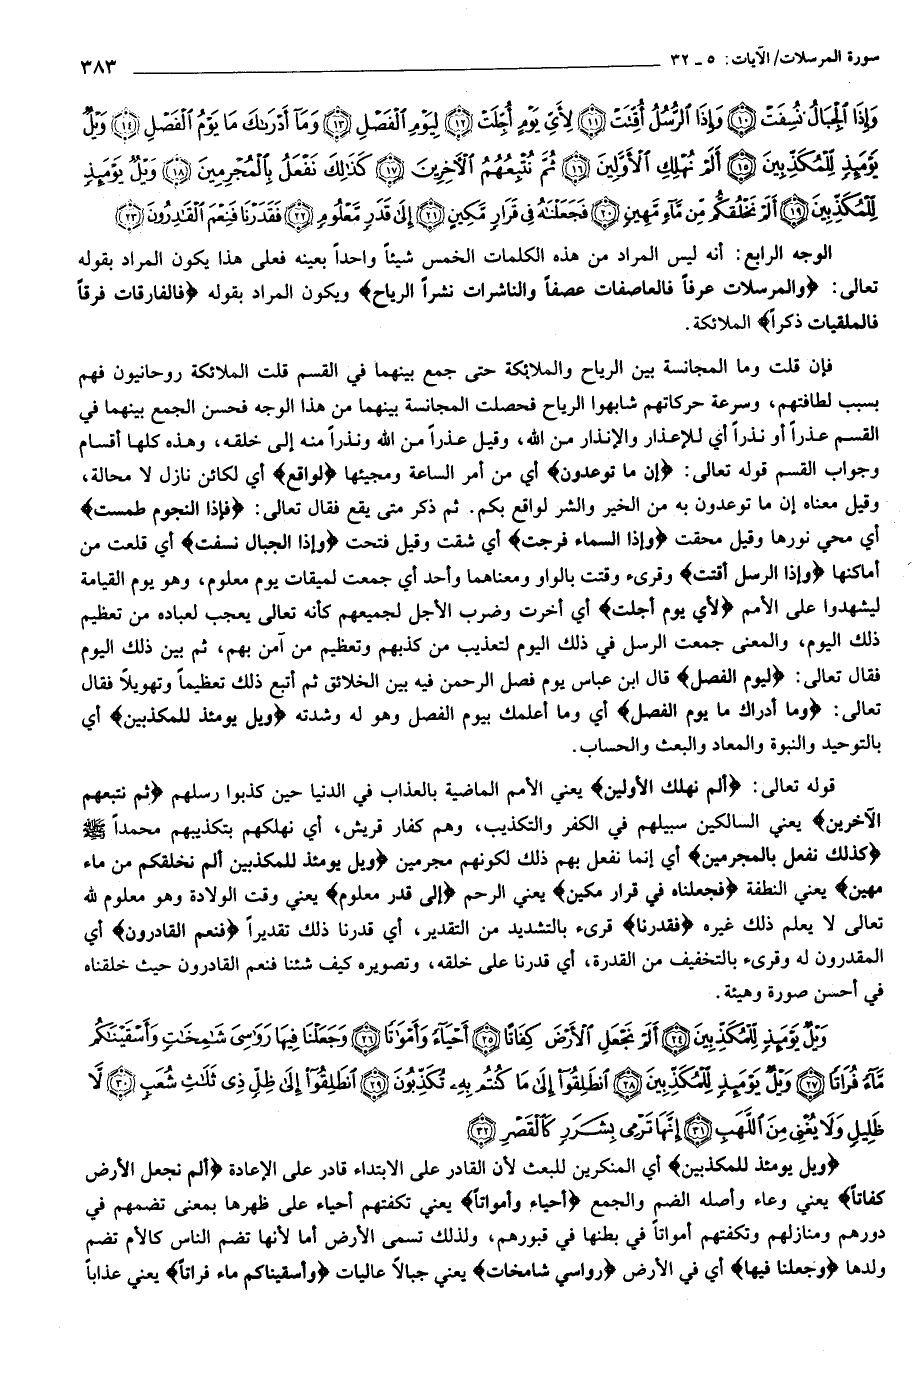 سورة المرسلات/ الآيات: ٥ ـ ٣٢
٣٨٣
وَإِذَا الْجِبَالُ نُسِفَتْ ﴿١٠﴾ وَإِذَا الرُّسُلُ أُقِّتَتْ ﴿١١﴾ لِأَيِّ يَوْمٍ أُجِّلَتْ ﴿١٢﴾ لِيَوْمِ الْفَصْلِ ﴿١٣﴾ وَمَا أَدْرَاكَ مَا يَوْمُ الْفَصْلِ ﴿١٤﴾ وَيْلٌ
يَوْمَئِذٍ لِلْمُكَذِّبِينَ ﴿١٥﴾ أَلَمْ نُهْلِكِ الْأَوَّلِينَ ﴿١٦﴾ ثُمَّ نُتْبِعُهُمُ الْآخِرِينَ ﴿١٧﴾ كَذَلِكَ نَفْعَلُ بِالْمُجْرِمِينَ ﴿١٨﴾ وَيْلٌ يَوْمَئِذٍ
لِلْمُكَذِّبِينَ ﴿١٩﴾ أَلَمْ نَخْلُقكُّم مِّن مَّاءٍ مَّهِينٍ ﴿٢٠﴾ فَجَعَلْنَاهُ فِي قَرَارٍ مَّكِينٍ ﴿٢١﴾ إِلَى قَدَرٍ مَّعْلُومٍ ﴿٢٢﴾ فَقَدَرْنَا فَنِعْمَ الْقَادِرُونَ ﴿٢٣﴾
الوجه الرابع: أنه ليس المراد من هذه الكلمات الخمس شيئاً واحداً بعينه فعلى هذا يكون المراد بقوله
تعالى: ﴿والمرسلات عرفاً فالعاصفات عصفاً والناشرات نشراً الرياح﴾ ويكون المراد بقوله ﴿فالفارقات فرقاً
فالملقيات ذكراً﴾ الملائكة.
فإن قلت وما المجانسة بين الرياح والملائكة حتى جمع بينهما في القسم قلت الملائكة روحانيون فهم
بسبب لطافتهم، وسرعة حركاتهم شابهوا الرياح فحصلت المجانسة بينهما من هذا الوجه فحسن الجمع بينهما في
القسم عذراً أو نذراً أي للإعذار والإنذار من الله، وقيل عذراً من الله ونذراً منه إلى خلقه، وهذه كلها أقسام
وجواب القسم قوله تعالى: ﴿إن ما توعدون﴾ أي من أمر الساعة ومجيئها ﴿لواقع﴾ أي لكائن نازل لا محالة،
وقيل معناه إن ما توعدون به من الخير والشر لواقع بكم. ثم ذكر متى يقع فقال تعالى: ﴿فإذا النجوم طمست﴾
أي محي نورها وقيل محقت ﴿وإذا السماء فرجت﴾ أي شقت وقيل فتحت ﴿وإذا الجبال نسفت﴾ أي قلعت من
أماكنها ﴿وإذا الرسل أقتت﴾ وقرىء وقتت بالواو ومعناهما واحد أي جمعت لميقات يوم معلوم، وهو يوم القيامة
ليشهدوا على الأمم ﴿لأي يوم أجلت﴾ أي أخرت وضرب الأجل لجميعهم كأنه تعالى يعجب لعباده من تعظيم
ذلك اليوم، والمعنى جمعت الرسل في ذلك اليوم لتعذيب من كذبهم وتعظيم من آمن بهم، ثم بين ذلك اليوم
فقال تعالى: ﴿ليوم الفصل﴾ قال ابن عباس يوم فصل الرحمن فيه بين الخلائق ثم أتبع ذلك تعظيماً وتهويلاً فقال
تعالى: ﴿وما أدراك ما يوم الفصل﴾ أي وما أعلمك بيوم الفصل وهو له وشدته ﴿ويل يومئذ للمكذبين﴾ أي
بالتوحيد والنبوة والمعاد والبعث والحساب.
قوله تعالى: ﴿ألم نهلك الأولين﴾ يعني الأمم الماضية بالعذاب في الدنيا حين كذبوا رسلهم ﴿ثم نتبعهم
الآخرين﴾ يعني السالكين سبيلهم في الكفر والتكذيب، وهم كفار قريش، أي نهلكهم بتكذيبهم محمداً ﷺ
﴿كذلك نفعل بالمجرمين﴾ أي إنما نفعل بهم ذلك لكونهم مجرمين ﴿ويل يومئذ للمكذبين ألم نخلقكم من ماء
مهين﴾ يعني النطفة ﴿فجعلناه في قرار مكين﴾ يعني الرحم ﴿إلى قدر معلوم﴾ يعني وقت الولادة وهو معلوم لله
تعالى لا يعلم ذلك غيره ﴿فقدرنا﴾ قرىء بالتشديد من التقدير، أي قدرنا ذلك تقديراً ﴿فنعم القادرون﴾ أي
المقدرون له وقرىء بالتخفيف من القدرة، أي قدرنا على خلقه، وتصويره كيف شئنا فنعم القادرون حيث خلقناه
في أحسن صورة وهيئة.
وَيْلٌ يَوْمَئِذٍ لِلْمُكَذِّبِينَ ﴿٢٤﴾ أَلَمْ نَجْعَلِ الْأَرْضَ كِفَاتًا ﴿٢٥﴾ أَحْيَاءً وَأَمْوَاتًا ﴿٢٦﴾ وَجَعَلْنَا فِيهَا رَوَاسِيَ شَامِخَاتٍ وَأَسْقَيْنَاكُم
مَّاءً فُرَاتًا ﴿٢٧﴾ وَيْلٌ يَوْمَئِذٍ لِلْمُكَذِّبِينَ ﴿٢٨﴾ انطَلِقُوا إِلَى مَا كُنتُم بِهِ تُكَذِّبُونَ ﴿٢٩﴾ انطَلِقُوا إِلَى ظِلٍّ ذِي ثَلَاثِ شُعَبٍ ﴿٣٠﴾ لَّا
ظَلِيلٍ وَلَا يُغْنِي مِنَ اللَّهَبِ ﴿٣١﴾ إِنَّهَا تَرْمِي بِشَرَرٍ كَالْقَصْرِ ﴿٣٢﴾
﴿ويل يومئذ للمكذبين﴾ أي المنكرين للبعث لأن القادر على الابتداء قادر على الإعادة ﴿ألم نجعل الأرض
كفاتاً﴾ يعني وعاء وأصله الضم والجمع ﴿أحياء وأمواتاً﴾ يعني تكفتهم أحياء على ظهرها بمعنى تضمهم في
دورهم ومنازلهم وتكفتهم أمواتاً في بطنها في قبورهم، ولذلك تسمى الأرض أما لأنها تضم الناس كالأم تضم
ولدها ﴿وجعلنا فيها﴾ أي في الأرض ﴿رواسي شامخات﴾ يعني جبالاً عاليات ﴿وأسقيناكم ماء فراتاً﴾ يعني عذاباً